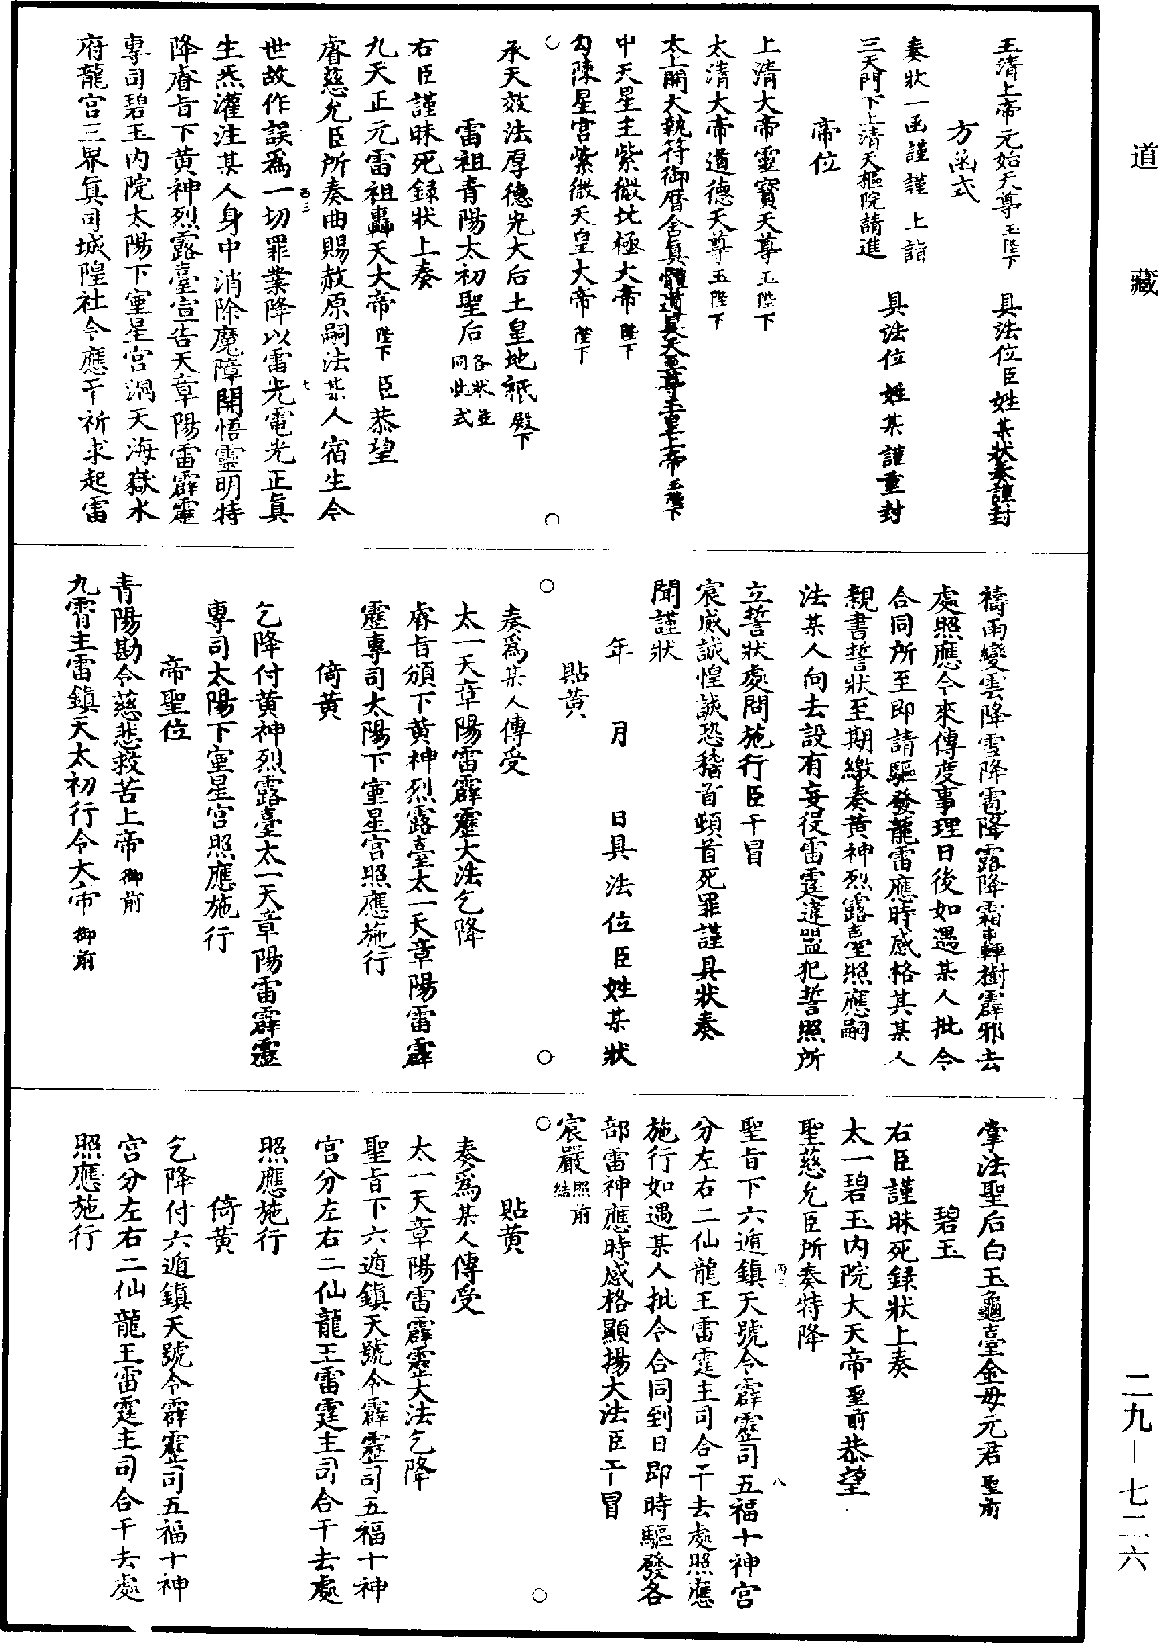 道藏
玉清上帝元始天尊玉陛下　具法位臣姓某狀奏謹封
方函式
奏狀一函謹謹　上詣
三天門下上清天樞院請進　具法位　姓某謹重封
帝位
上清大帝靈寶天尊玉陛下
太清大帝道德天尊玉陛下
太上開天執符御曆含真體道昊天至尊玉皇上帝玉陛下
中天星主紫微北極大帝陛下
勾陳星宮紫微天皇大帝陛下
承天效法厚德光大后土皇地祇殿下
雷祖青陽太初聖后各狀並同此式
右臣謹昧死錄狀上奏
九天正元雷祖轟天大帝陛下　臣恭望
睿慈允臣所奏曲賜赦原嗣法某人宿生今
世故作誤爲一切罪業降以雷光電光正真
生炁灌注某人身中消除魔障開悟靈明特
降睿旨下黄神烈露臺宣告天章陽雷霹靂
專司碧玉内院太陽下室星宮渦天海嶽水
府龍宮三界真司城隍社令應干祈求起雷
禱雨變雲降雪降雹降露降霜轟樹霹邪去
處照應令來傳度事理日後如遇某人批令
合同所至即請驅發龍雷應時感格其某人
親書誓狀至期繳奏黄神烈露臺照應嗣
法某人向去設有妄役雷霆違盟犯誓照所
立誓狀處問施行臣干冒
宸威誠惶誠恐稽首頓首死罪謹具狀奏
聞謹狀
年　月　日具法位臣姓某狀
貼黄
奏爲某人傳受
太一天章陽雷霹靂大法乞降
睿旨頒下黄神烈露臺太一天章陽雷霹
靂專司太陽下室星宮照應施行
倚黄
乞降付黄神烈露臺太一天章陽雷霹靂
專司太陽下室星宮照應施行
帝聖位
青陽勘令慈悲救苦上帝御前
九霄主雷鎮天太初行令大帝御前
掌法聖后白玉龜臺金母元君聖前
碧玉
右臣謹昧死錄狀上奏
太一碧玉内院大天帝聖前恭望
聖慈允臣所奏特降
聖旨下六遁鎮天號令霹靂司五福十神宮
分左右二仙龍王雷霆主司合干去處照應
施行如遇某人批令合同到日即時驅發各
部雷神應時感格顯揚大法臣干冒
宸嚴照前結
貼黄
奏爲某人傳受
太一天章陽雷霹靂大法乞降
聖旨下六遁鎮天號令霹靂司五福十神
宮分左右二仙龍王雷霆主司合干去處
照應施行
倚黄
乞降付六遁鎮天號令霹靂司五福十神
宮分左右二仙龍王雷霆主司合干去處
照應施行
二九—七二六